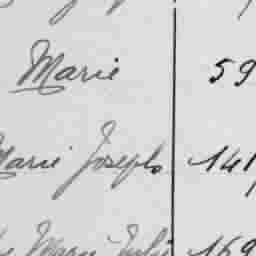 Marie 59
Marie Joseph 141
Marie Julie 169